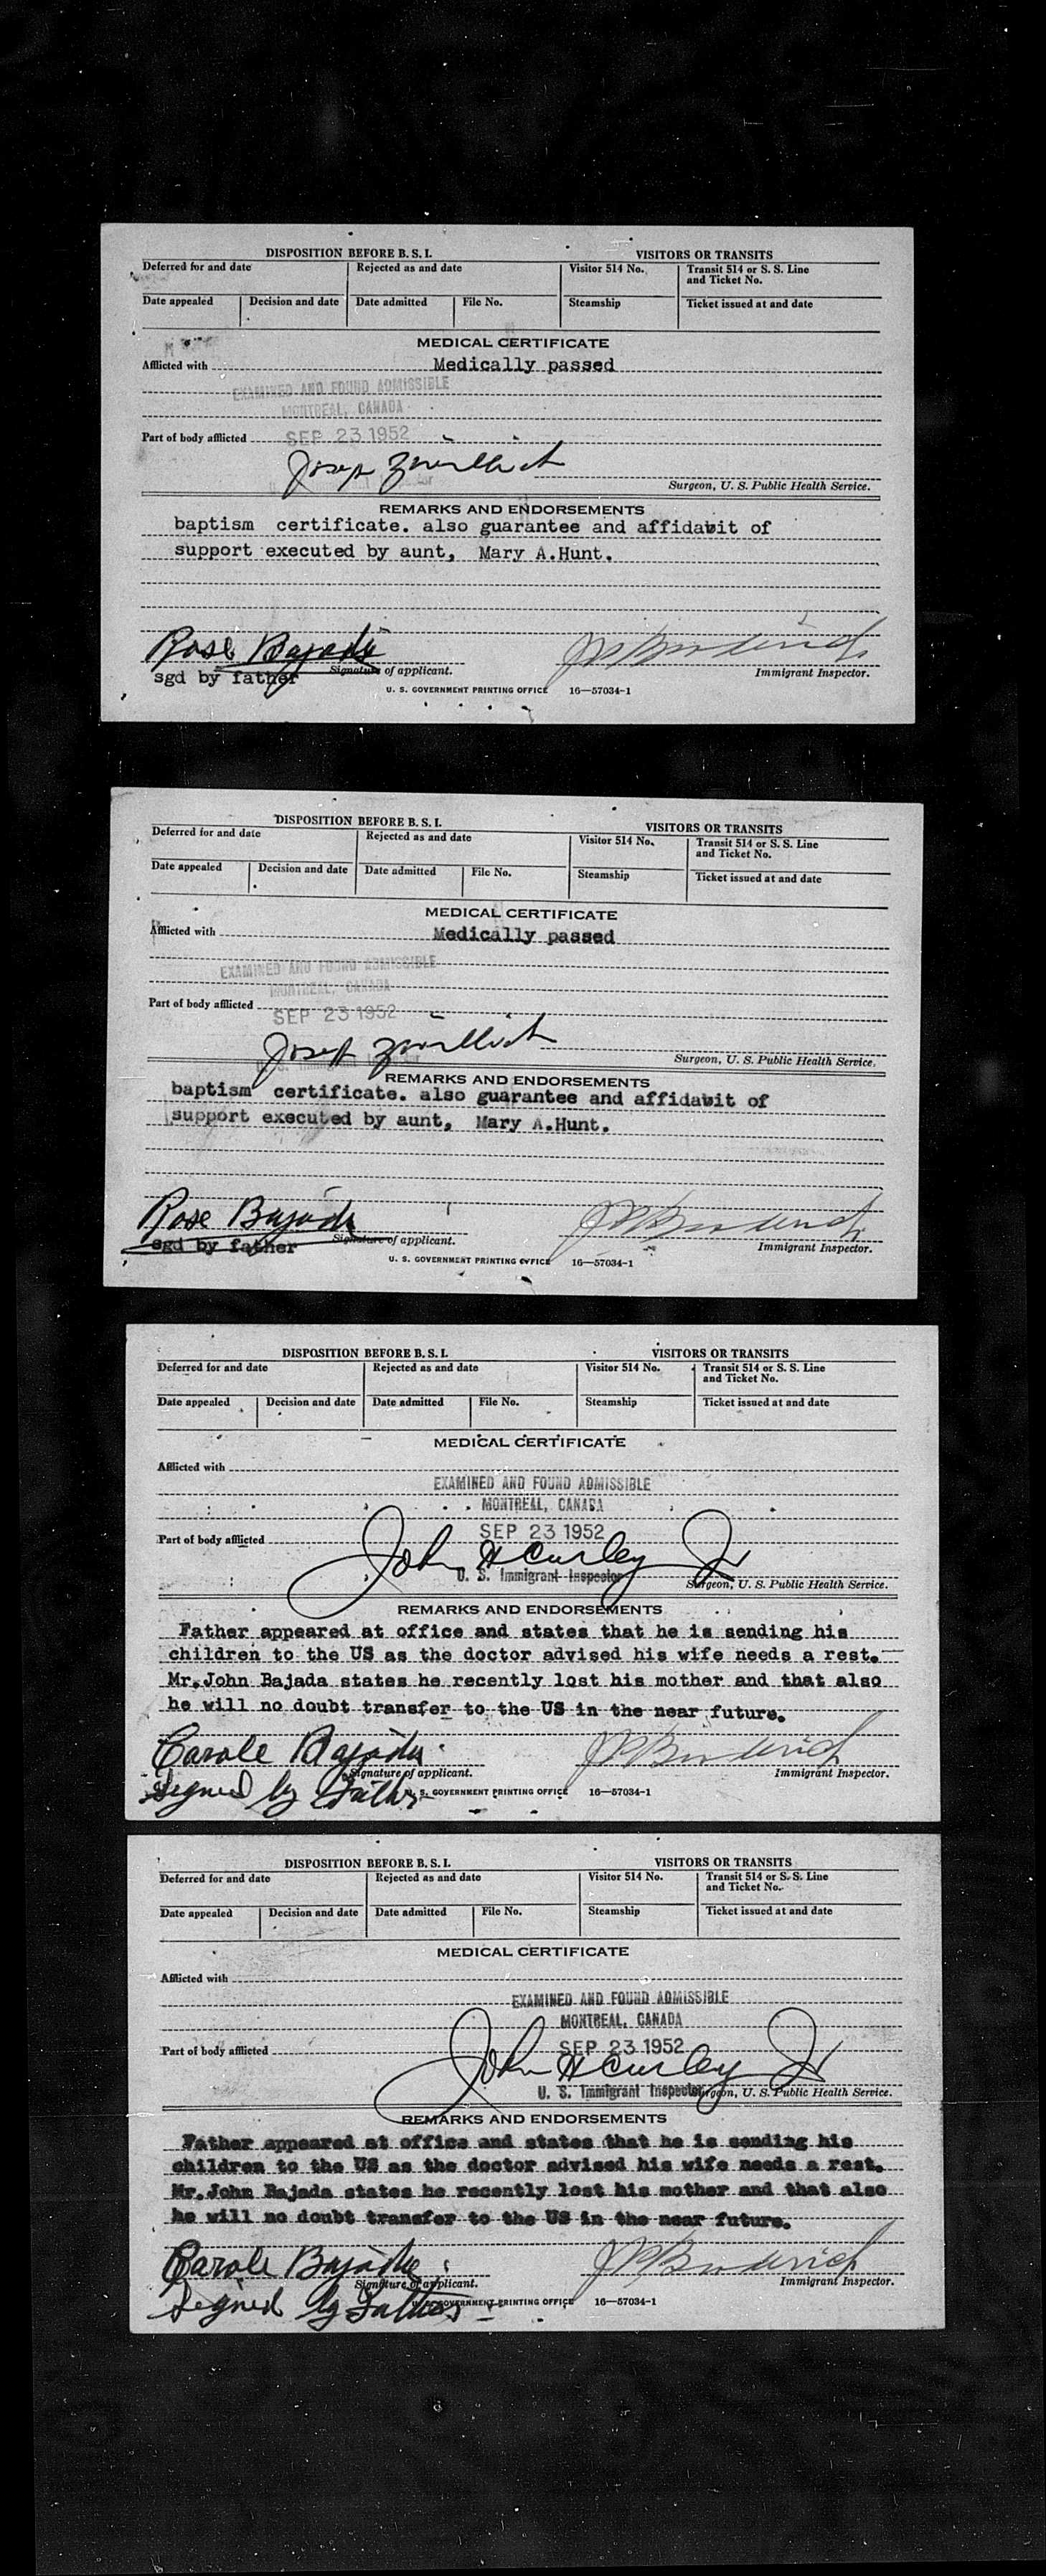 DISPOSITION BEFORE B. S. I. VISITORS OR TRANSITS
Deferred for and date Rejected as and date Visitor 514 No. Transit 514 or S. S. Line and Ticket No.
Date appealed Decision and date Date admitted File No. Steamship Ticket issued at and date
MEDICAL CERTIFICATE
Afflicted with Medically passed
EXAMINED AND FOUND ADMISSIBLE
MONTREAL, CANADA
Part of body afflicted SEP 23 1952
Surgeon, U. S. Public Health Service.
REMARKS AND ENDORSEMENTS
baptism certificate. also guarantee and affidavit of
support executed by aunt, Mary A.Hunt.
Rose Bajada
sgd by father Signature of applicant. Immigrant Inspector.
U. S. GOVERNMENT PRINTING OFFICE 16—57034-1
DISPOSITION BEFORE B. S. I. VISITORS OR TRANSITS
Deferred for and date Rejected as and date Visitor 514 No. Transit 514 or S. S. Line and Ticket No.
Date appealed Decision and date Date admitted File No. Steamship Ticket issued at and date
MEDICAL CERTIFICATE
Afflicted with Medically passed
EXAMINED AND FOUND ADMISSIBLE
MONTREAL, CANADA
Part of body afflicted SEP 23 1952
Surgeon, U. S. Public Health Service.
REMARKS AND ENDORSEMENTS
baptism certificate. also guarantee and affidavit of
support executed by aunt, Mary A.Hunt.
Rose Bajada
sgd by father Signature of applicant. Immigrant Inspector.
U. S. GOVERNMENT PRINTING OFFICE 16—57034-1
DISPOSITION BEFORE B. S. I. VISITORS OR TRANSITS
Deferred for and date Rejected as and date Visitor 514 No. Transit 514 or S. S. Line and Ticket No.
Date appealed Decision and date Date admitted File No. Steamship Ticket issued at and date
MEDICAL CERTIFICATE
Afflicted with
EXAMINED AND FOUND ADMISSIBLE
MONTREAL, CANADA
Part of body afflicted SEP 23 1952
John H Curley Jr
U. S. Immigrant Inspector Surgeon, U. S. Public Health Service.
REMARKS AND ENDORSEMENTS
Father appeared at office and states that he is sending his
children to the US as the doctor advised his wife needs a rest.
Mr.John Bajada states he recently lost his mother and that also
he will no doubt transfer to the US in the near future.
Carole Bajada
Signature of applicant. Immigrant Inspector.
Signed by Father U. S. GOVERNMENT PRINTING OFFICE 16—57034-1
DISPOSITION BEFORE B. S. I. VISITORS OR TRANSITS
Deferred for and date Rejected as and date Visitor 514 No. Transit 514 or S. S. Line and Ticket No.
Date appealed Decision and date Date admitted File No. Steamship Ticket issued at and date
MEDICAL CERTIFICATE
Afflicted with
EXAMINED AND FOUND ADMISSIBLE
MONTREAL, CANADA
Part of body afflicted SEP 23 1952
John H Curley Jr
U. S. Immigrant Inspector Surgeon, U. S. Public Health Service.
REMARKS AND ENDORSEMENTS
Father appeared at office and states that he is sending his
children to the US as the doctor advised his wife needs a rest.
Mr.John Bajada states he recently lost his mother and that also
he will no doubt transfer to the US in the near future.
Carole Bajada
Signature of applicant. Immigrant Inspector.
Signed by Father U. S. GOVERNMENT PRINTING OFFICE 16—57034-1